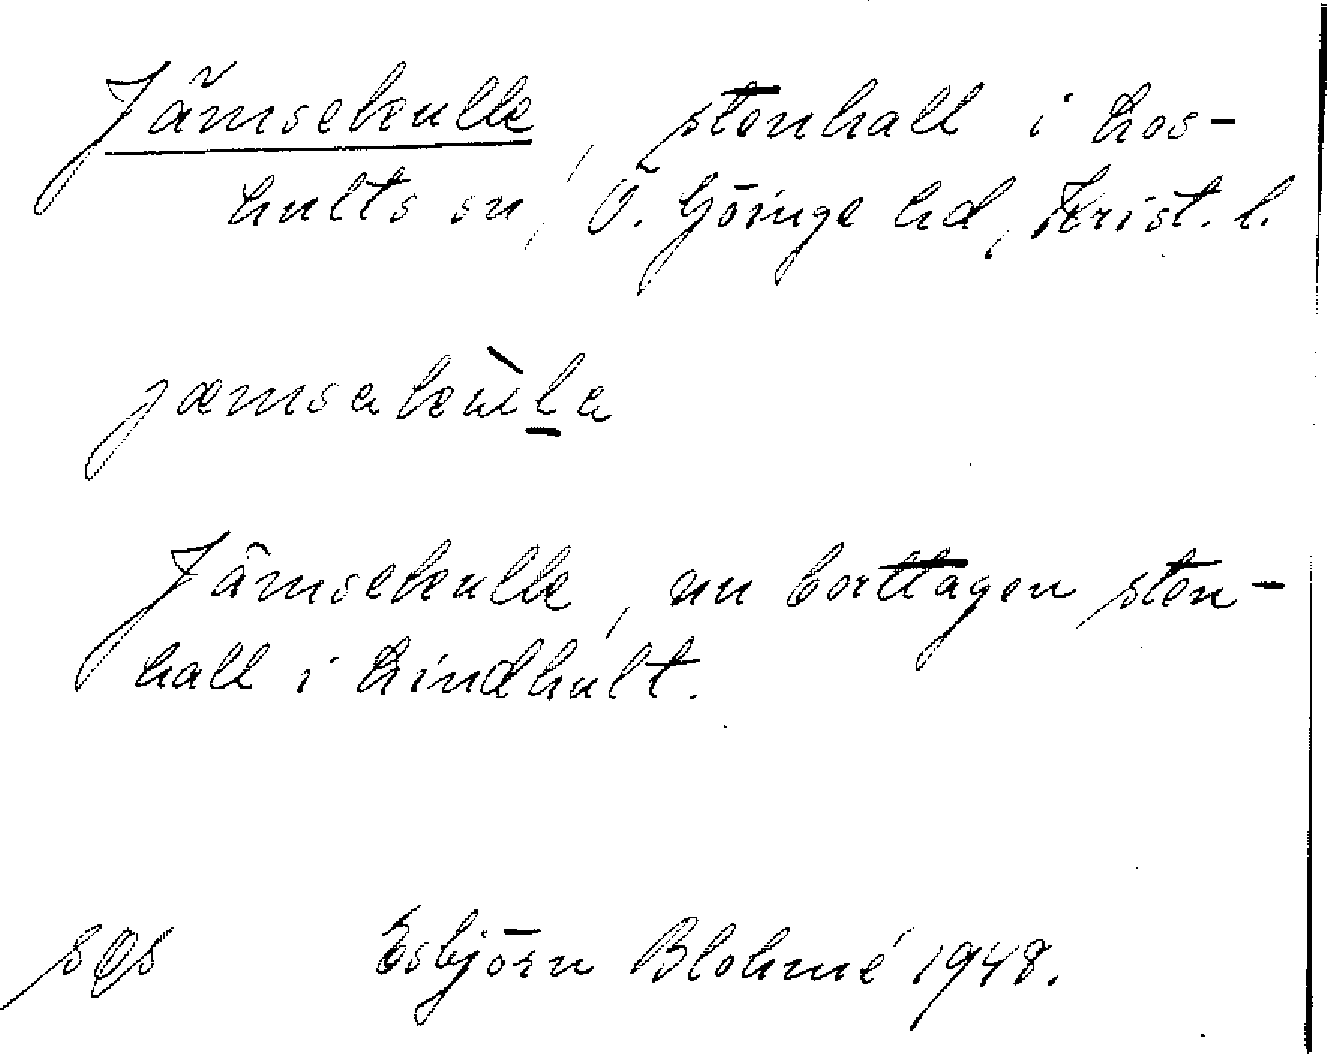 Jämsekulle, stenhall i Los-
hults sn, Ö. Göinge hd, Krist. l.
jæmsakùl̲a
Jämsekulle, nu borttagen sten-
hall i Lindhult.
Esbjörn Blohmé 1948.